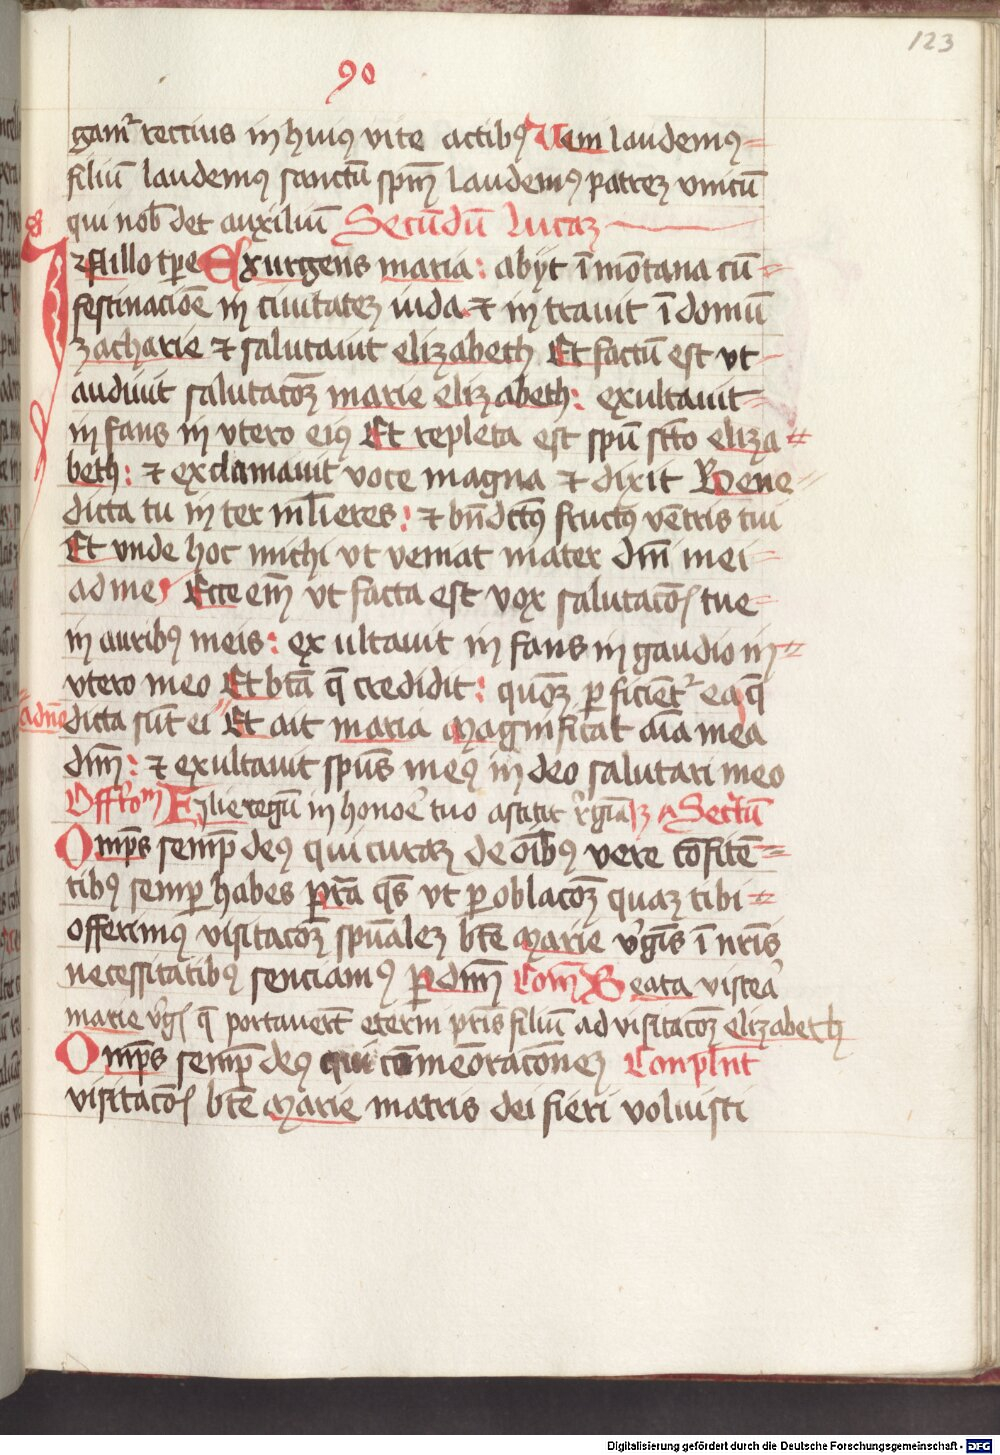 123
90
gam᷒ rectius in huiꝰ vite actibꝰ Uem laudemꝰ
filiū laudemꝰ sanctū spm̄ laudemꝰ patreꝫ vnicū
qui nob̄ det auxiliū Secūdū lucaꝫ
In illo tp̄e Exurgens maria: abijt ī mōtana cū
festinaciōe in ciuitateꝫ iuda ⁊ in trauit ī domū
zacharie ⁊ salutauit elizabeth Et factū est vt
audiuit salutacōꝫ marie elizabeth: exultauit
in fans in vtero eiꝰ Et repleta est spū sc̄to eliza
beth: ⁊ exclamauit voce magna ⁊ dixit Bene
dicta tu in ter ml̄ieres: ⁊ bn̄dctꝰ fructꝰ vētris tui
Et vnde hoc michi vt veniat mater dm̄ mei
ad me Ecce em̄ vt facta est vox salutacōꝭ tue
in auribꝰ meis: ex ultauit in fans in gaudio in
vtero meo Et btā q̄ credidit: quōꝫ ꝑ ficiēt᷒ ea q̄
adnē dicta sūt ei Et ait maria Magnificat aīa mea
dm̄: ⁊ exultauit spūs meꝰ in deo salutari meo
Offr̄om Filie regū in honoē tuo astitit Sectū
Omp̄s semp̄ deꝰ qui curaꝫ de oībꝰ vere cōfitē
tibꝰ semper habes pr̄a qs̄ vt ꝑ oblacōꝫ quaꝫ tibi
offerimꝰ visitacōꝫ spūaleꝫ btē Marie v̓gīs ī nr̄is
necessitatibꝰ senciamꝰ ꝑ dm̄ Com̄ Beata viscea᷒
marie v̓gꝭ q̄ portauer̄t eterni pr̄is filiū ad visitacōꝫ elizabeth
Omp̄s semp̄ deꝰ qui cōmeōracōneꝫ Conpl̄nt
visitacōꝭ btē Marie matris dei fieri voluisti
Digitalisierung gefördert durch die Deutsche Forschungsgemeinschaft - DFG